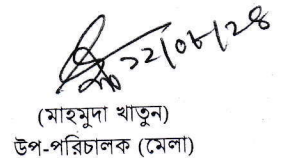 ২২/০৮/২৪
(মাহমুদা খাতুন)
উপ-পরিচালক (মেলা)